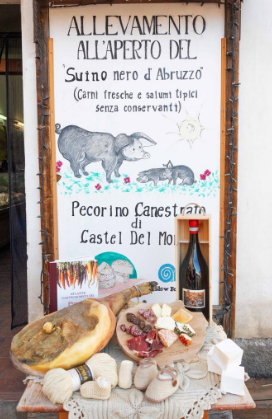 ALLEVAMENTO
ALL'APERTO DEL
"Suino nero d'Abruzzo"
(Carni fresche e salumi tipici
senza conservanti)
Pecorino Canestrato
di
Castel Del Mon